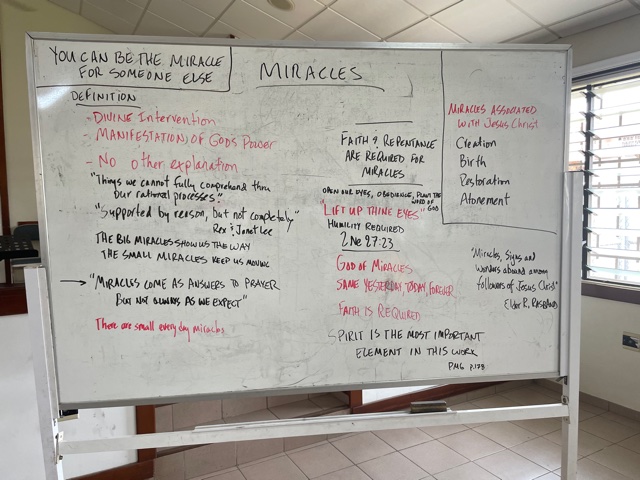 YOU CAN BE THE MIRACLE
FOR SOMEONE ELSE
MIRACLES
DEFINITION
- DIVINE INTERVENTION
- MANIFESTATION OF GODS POWER
- NO other explanation
"Things we cannot fully comprehend thru
our rational processes."
"Supported by reason, but not completely"
Rex & Janet Lee
THE BIG MIRACLES SHOW US THE WAY
THE SMALL MIRACLES KEEP US MOVING
→ "MIRACLES COME AS ANSWERS TO PRAYER
BUT NOT ALWAYS AS WE EXPECT"
There are small every day miracles
FAITH & REPENTANCE
ARE REQUIRED FOR
MIRACLES
OPEN OUR EYES, OBEDIENCE, PLANT THE
WORD OF
GOD
"LIFT UP THINE EYES"
HUMILITY REQUIRED
2 Ne 27:23
GOD OF MIRACLES
SAME YESTERDAY, TODAY, FOREVER
FAITH IS REQUIRED
SPIRIT IS THE MOST IMPORTANT
ELEMENT IN THIS WORK
PMG P.
MIRACLES ASSOCIATED
WITH JESUS CHRIST
Creation
Birth
Restoration
Atonement
"Miracles, Signs and
wonders abound among
followers of Jesus Christ"
Elder R.